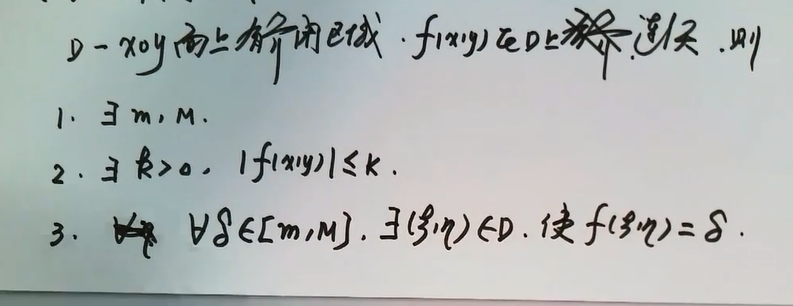 D-xoy面上有界闭区域.f(x,y)在D上连续.则
1. ∃ m, M.
2. ∃ k>0, |f(x,y)|≤k.
3. ∀δ∈[m,M].∃(ξ,η)∈D.使f(ξ,η)=δ.